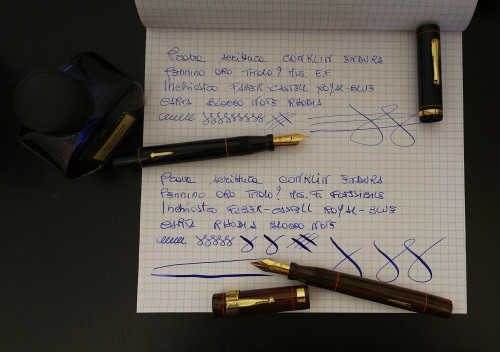 Prova scrittura CONKLIN ENDURA
PENNINO ORO TITOLO? MIS. E.F.
Inchiostro FABER-CASTELL ROYAL-BLUE
CARTA BLOCCO NOTE RHODIA
Prova scrittura CONKLIN ENDURA
PENNINO ORO TITOLO? MIS. F. FLESSIBILE
Inchiostro FABER-CASTELL ROYAL-BLUE
CARTA RHODIA BLOCCO NOTE